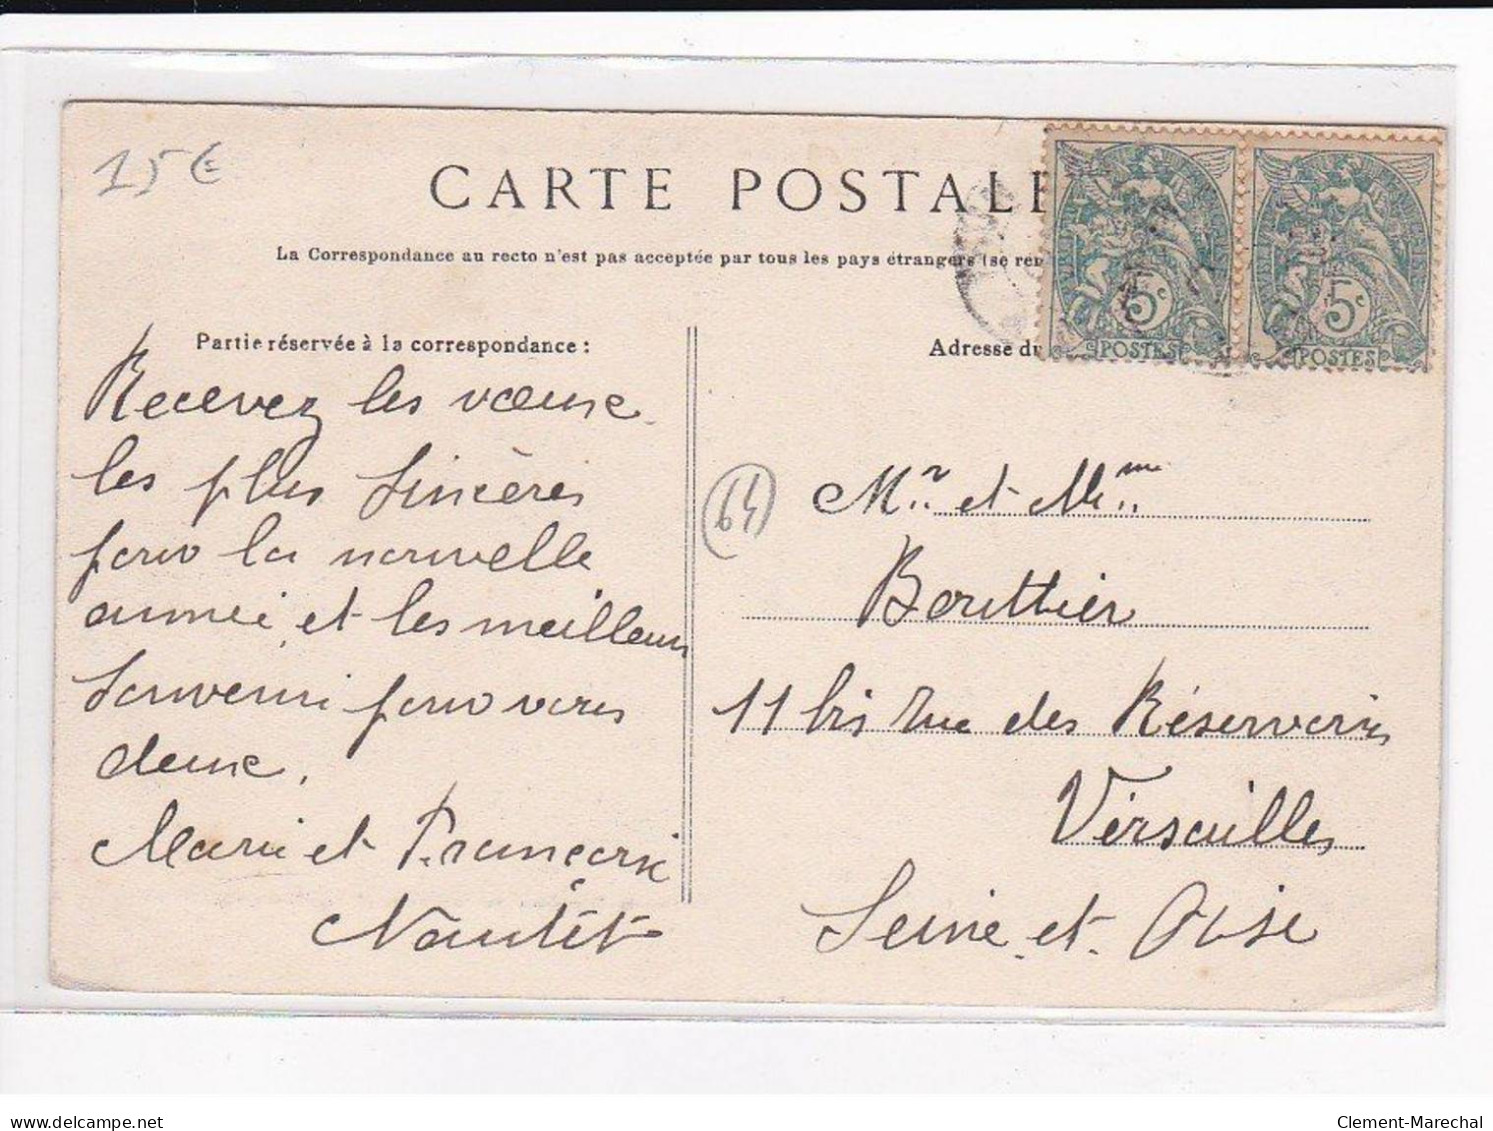 15€
CARTE POSTALE
La Correspondance au recto n'est pas acceptée par tous les pays étrangers (se ren
Partie réservée à la correspondance :
Adresse du
5c
POSTES
5c
POSTES
Recevez les vœux
les plus sincères
pour la nouvelle
année et les meilleurs
Souvenir pour vous
deux.
Marie et Françoris
Nautét
64
Mr et Mme
Bouttier
11 bis rue des Réservoirs
Versailles
Seine et Oise
delcampe.net
Clement-Marechal